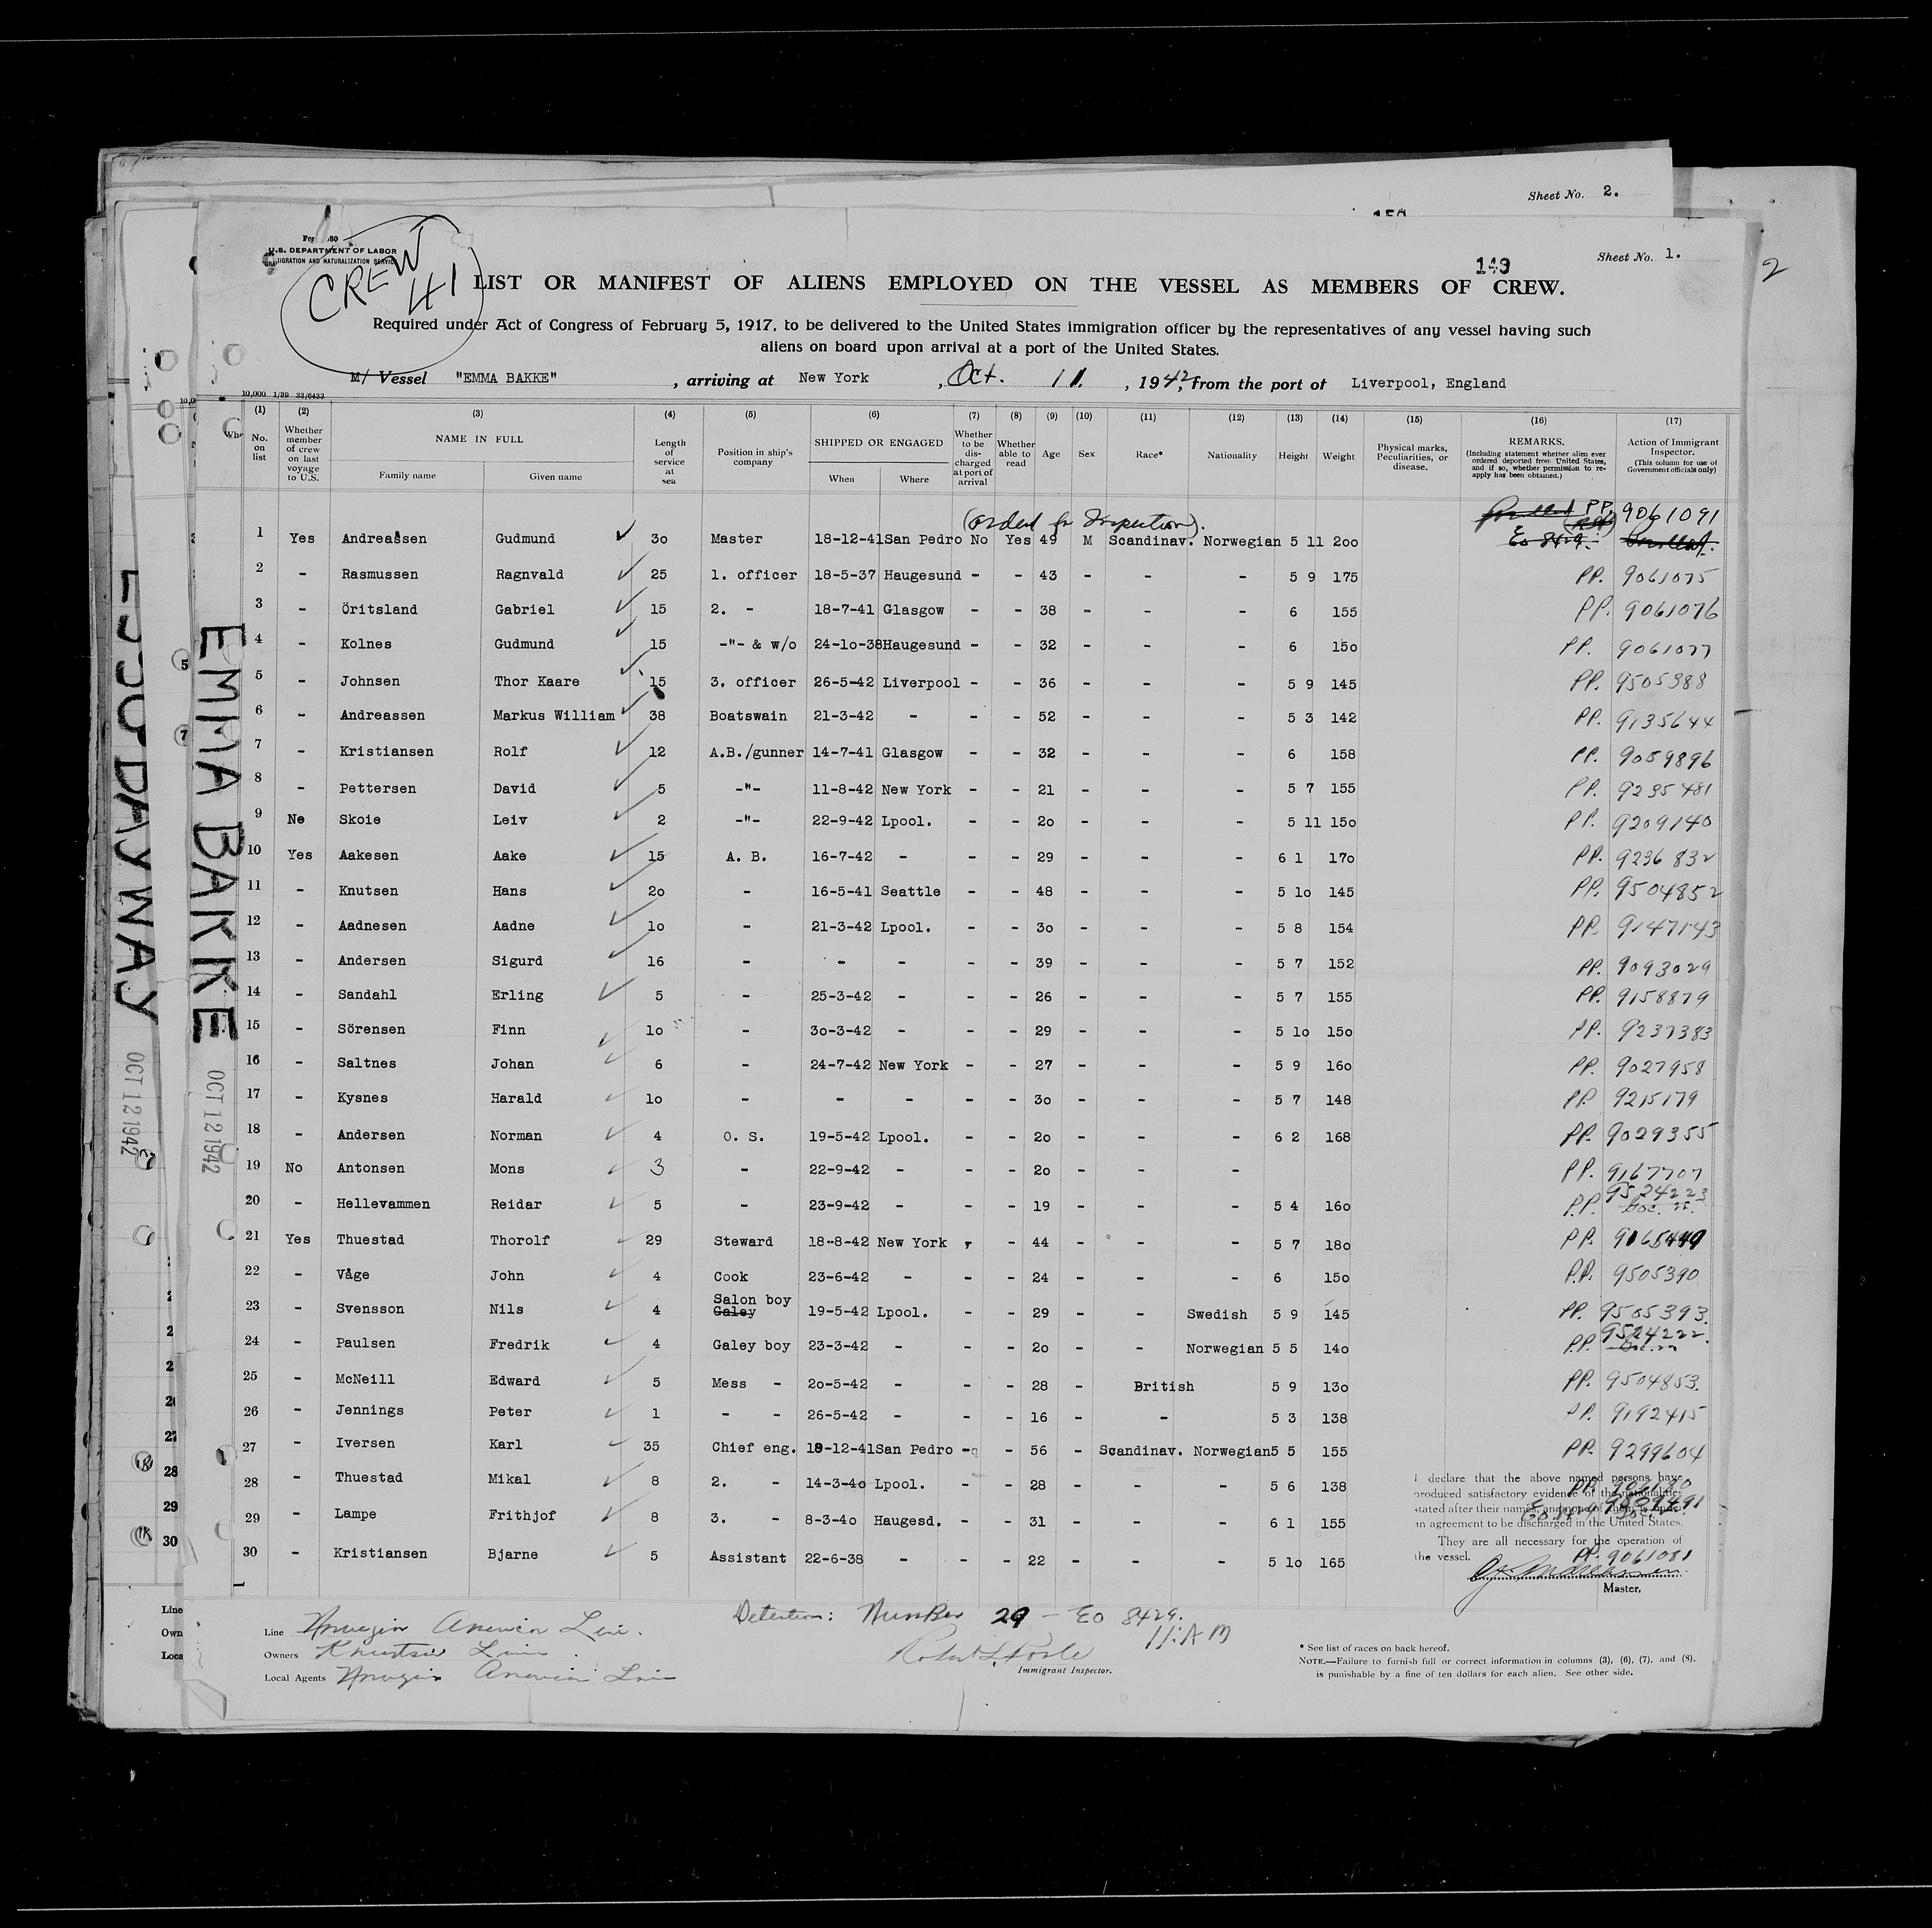 Sheet No. 2.
Sheet No. 1.
149
2
U.S. DEPARTMENT OF LABOR
IMMIGRATION AND NATURALIZATION SERVICE
CREW 41
LIST OR MANIFEST OF ALIENS EMPLOYED ON THE VESSEL AS MEMBERS OF CREW.
Required under Act of Congress of February 5, 1917, to be delivered to the United States immigration officer by the representatives of any vessel having such
aliens on board upon arrival at a port of the United States.
M/ Vessel "EMMA BAKKE" , arriving at New York , Oct. 11. , 1942, from the port of Liverpool, England
10,000 1/39 33/6433
(1) (2) (3) (4) (5) (6) (7) (8) (9) (10) (11) (12) (13) (14) (15) (16) (17)
No. on list
Whether member of crew on last voyage to U.S.
NAME IN FULL
Family name Given name
Length of service at sea
Position in ship's company
SHIPPED OR ENGAGED
When Where
Whether to be discharged at port of arrival
Whether able to read
Age Sex Race* Nationality Height Weight
Physical marks, Peculiarities, or disease.
REMARKS.
(Including statement whether alien ever ordered deported from United States, and if so, whether permission to reapply has been obtained.)
Action of Immigrant Inspector.
(This column for use of Government officials only)
(ordered for Inspection).
1 Yes Andreassen Gudmund 3o Master 18-12-41 San Pedro No Yes 49 M Scandinav. Norwegian 5 11 2oo PP. 9061091
Eo 8429.
2 - Rasmussen Ragnvald 25 1. officer 18-5-37 Haugesund - - 43 - - - 5 9 175 PP. 9061075
3 - Öritsland Gabriel 15 2. - 18-7-41 Glasgow - - 38 - - - 6 155 PP. 9061076
4 - Kolnes Gudmund 15 -"- & w/o 24-1o-38 Haugesund - - 32 - - - 6 15o PP. 9061077
5 - Johnsen Thor Kaare 15 3. officer 26-5-42 Liverpool - - 36 - - - 5 9 145 PP. 9505388
6 - Andreassen Markus William 38 Boatswain 21-3-42 - - - 52 - - - 5 3 142 PP. 9135644
7 - Kristiansen Rolf 12 A.B./gunner 14-7-41 Glasgow - - 32 - - - 6 158 PP. 9059896
8 - Pettersen David 5 -"- 11-8-42 New York - - 21 - - - 5 7 155 PP. 9235481
9 No Skoie Leiv 2 -"- 22-9-42 Lpool. - - 2o - - - 5 11 15o PP. 9209140
10 Yes Aakesen Aake 15 A. B. 16-7-42 - - - 29 - - - 6 1 17o PP. 9236832
11 - Knutsen Hans 2o - 16-5-41 Seattle - - 48 - - - 5 1o 145 PP. 9504852
12 - Aadnesen Aadne 1o - 21-3-42 Lpool. - - 3o - - - 5 8 154 PP. 9147143
13 - Andersen Sigurd 16 - - - - - 39 - - - 5 7 152 PP. 9093029
14 - Sandahl Erling 5 - 25-3-42 - - - 26 - - - 5 7 155 PP. 9158879
15 - Sörensen Finn 1o - 3o-3-42 - - - 29 - - - 5 1o 15o PP. 9237383
16 - Saltnes Johan 6 - 24-7-42 New York - - 27 - - - 5 9 16o PP. 9027958
17 - Kysnes Harald 1o - - - - - 3o - - - 5 7 148 PP 9215179
18 - Andersen Norman 4 O. S. 19-5-42 Lpool. - - 2o - - - 6 2 168 PP. 9029355
19 No Antonsen Mons 3 - 22-9-42 - - - 2o - - - PP. 9167707
20 - Hellevammen Reidar 5 - 23-9-42 - - - 19 - - - 5 4 16o P.P. 9524223
21 Yes Thuestad Thorolf 29 Steward 18-8-42 New York - - 44 - - - 5 7 18o PP. 9065449
22 - Våge John 4 Cook 23-6-42 - - - 24 - - - 6 15o P.P. 9505390
23 - Svensson Nils 4 Salon boy Galey 19-5-42 Lpool. - - 29 - - Swedish 5 9 145 PP. 9505393.
24 - Paulsen Fredrik 4 Galey boy 23-3-42 - - - 2o - - Norwegian 5 5 14o P.P. 9524222.
25 - McNeill Edward 5 Mess - 2o-5-42 - - - 28 - British 5 9 13o PP. 9504853.
26 - Jennings Peter 1 - - 26-5-42 - - - 16 - - 5 3 138 PP. 9192415
27 - Iversen Karl 35 Chief eng. 18-12-41 San Pedro - - 56 - Scandinav. Norwegian 5 5 155 PP. 9299604
28 - Thuestad Mikal 8 2. - 14-3-4o Lpool. - - 28 - - - 5 6 138 PP.
29 - Lampe Frithjof 8 3. - 8-3-4o Haugesd. - - 31 - - - 6 1 155
30 - Kristiansen Bjarne 5 Assistant 22-6-38 - - - 22 - - - 5 1o 165 PP. 9061081
I declare that the above named persons have
produced satisfactory evidence of the nationalities
stated after their names and none of them is under
an agreement to be discharged in the United States.
They are all necessary for the operation of
the vessel.
Master.
Detention: Number 29 - Eo 8429.
11:AM
Line Norwegian American Line.
Owners Knutsen Line.
Local Agents Norwegian American Line
Immigrant Inspector.
* See list of races on back hereof.
NOTE.—Failure to furnish full or correct information in columns (3), (6), (7), and (8),
is punishable by a fine of ten dollars for each alien. See other side.
EMMA BAKKE
OCT 12 1942
WAY
OCT 12 1942